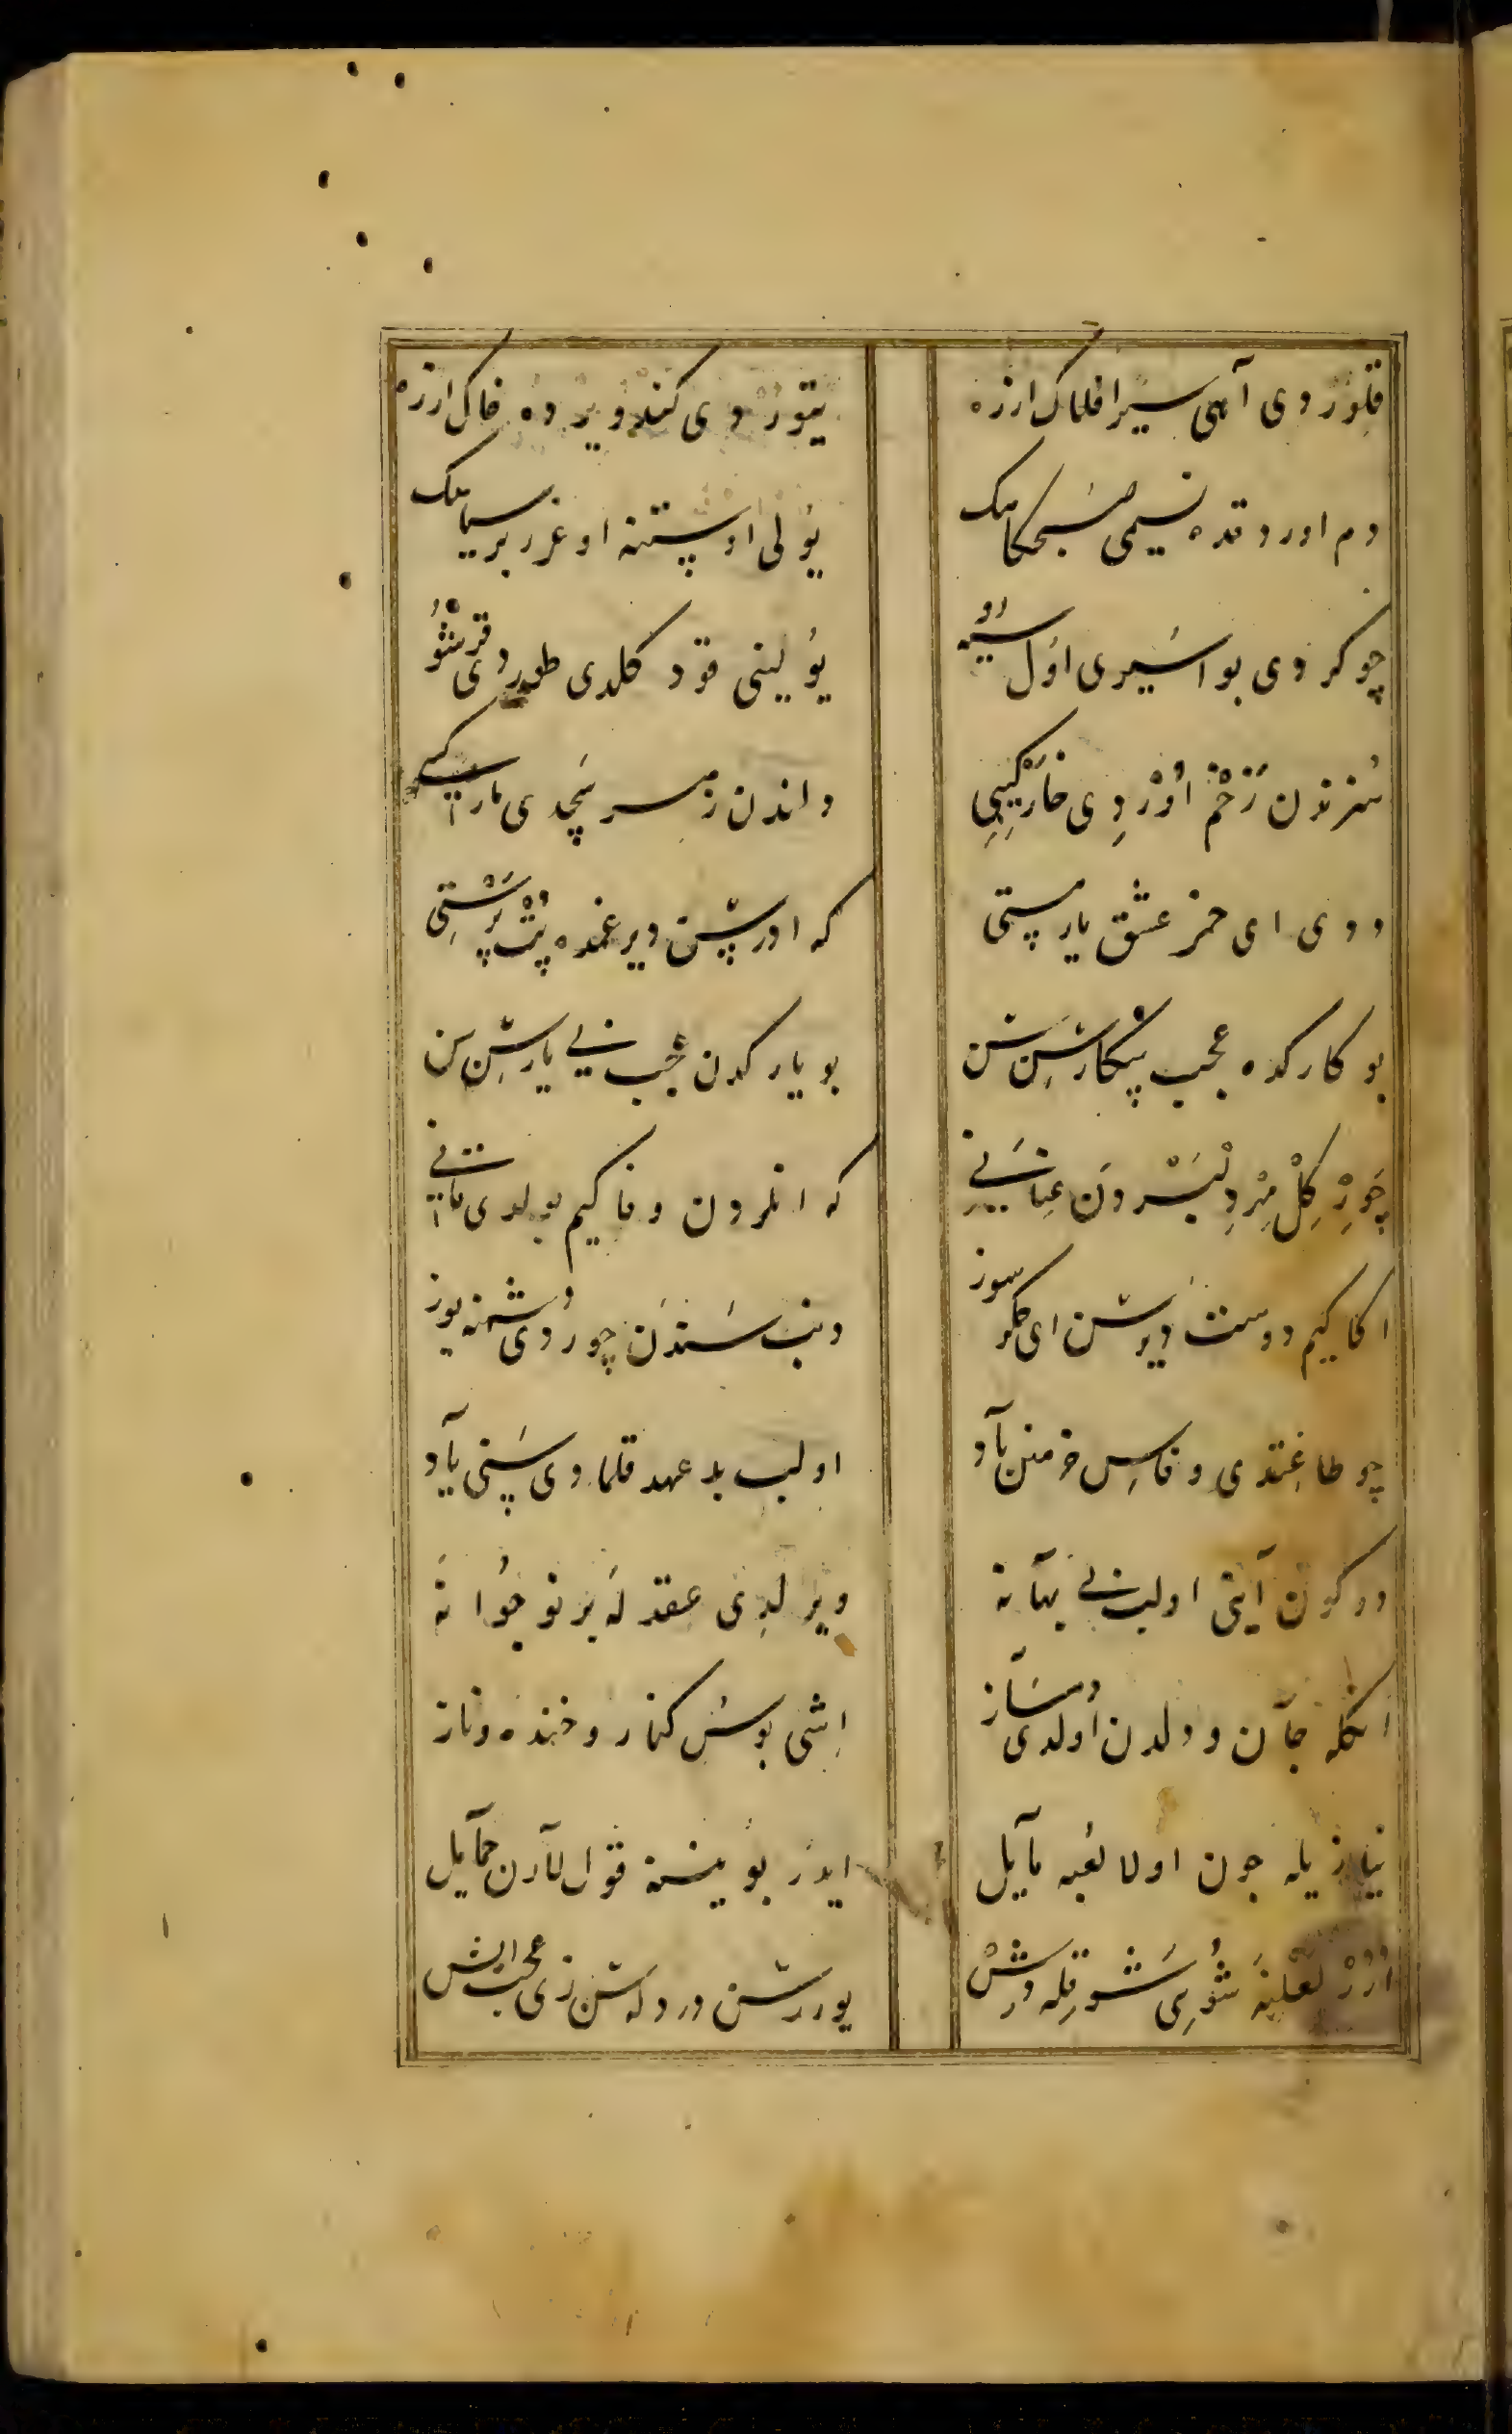 قلوردی آهی سیر افلاک ارزه یتوردی کندویرده خاک ارزه
دم اوردقده نسیمی صبحکاهک یولی اوستنه اوغرر بر سیاهک
چو کردی بو اسیری اول سیه رو یولینی قود کلدی طوردی قرشو
سزندن زخم اوردی خار کیبی داندن زهر سچدی مار کیبی
ددی ای خمر عشق یار مستی که اورسن دیر غمده بت پرستی
بو کارکده عجب بیکارسن سن بو یارکدن عجب بی یارسن سن
چویر کل مهر دلبردن عنانی که انلردن وفا کیم بولدی قانی
اکا کیم دوست دیرسن ای جکرسوز دنب سندن چوردی دشمنه یوز
چو طاغتدی وفاسی خرمنن باد اولب بد عهد قلمادی سنی یاد
دوکون ایتی اولب بی بهانه ویرلدی عقدله بر نو جوانه
انکله جان ودلدن اولدی دمساز اشی بوس کنار وخنده وناز
نیازیله چون اولا لعبه مایل ایدر بوینینه قوللارن حمایل
اورر لعلینه شوری شوقله دش یوررسن دردله سن زی عجب ایش